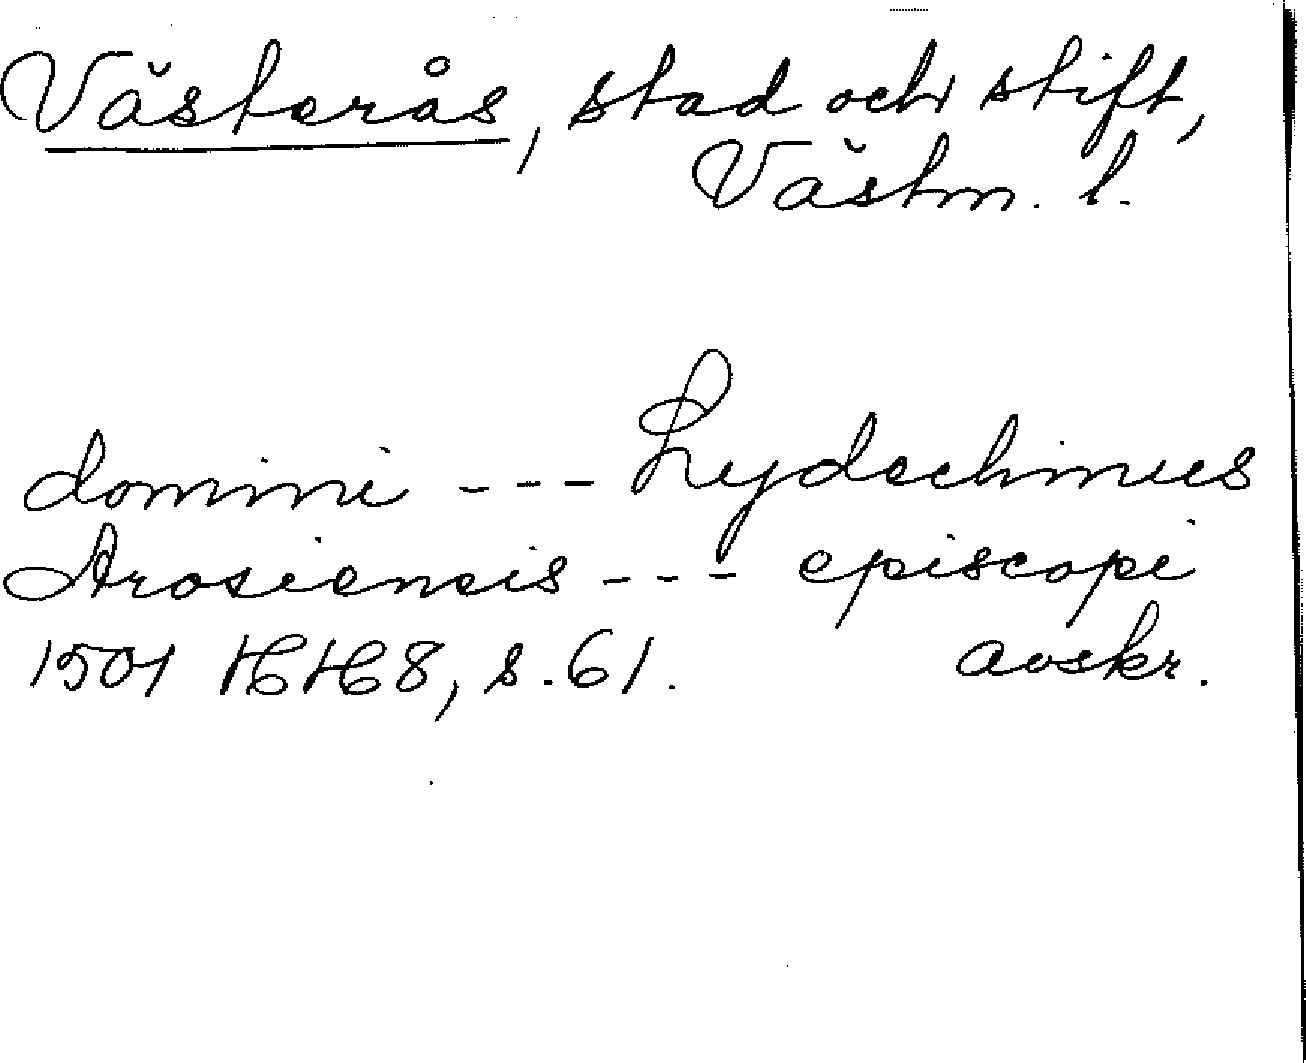 Västerås, stad och stift,
Västm. l.
domini --- Lydechinus
Arosiensis --- episcopi
1501 HH 8, s. 61. avskr.